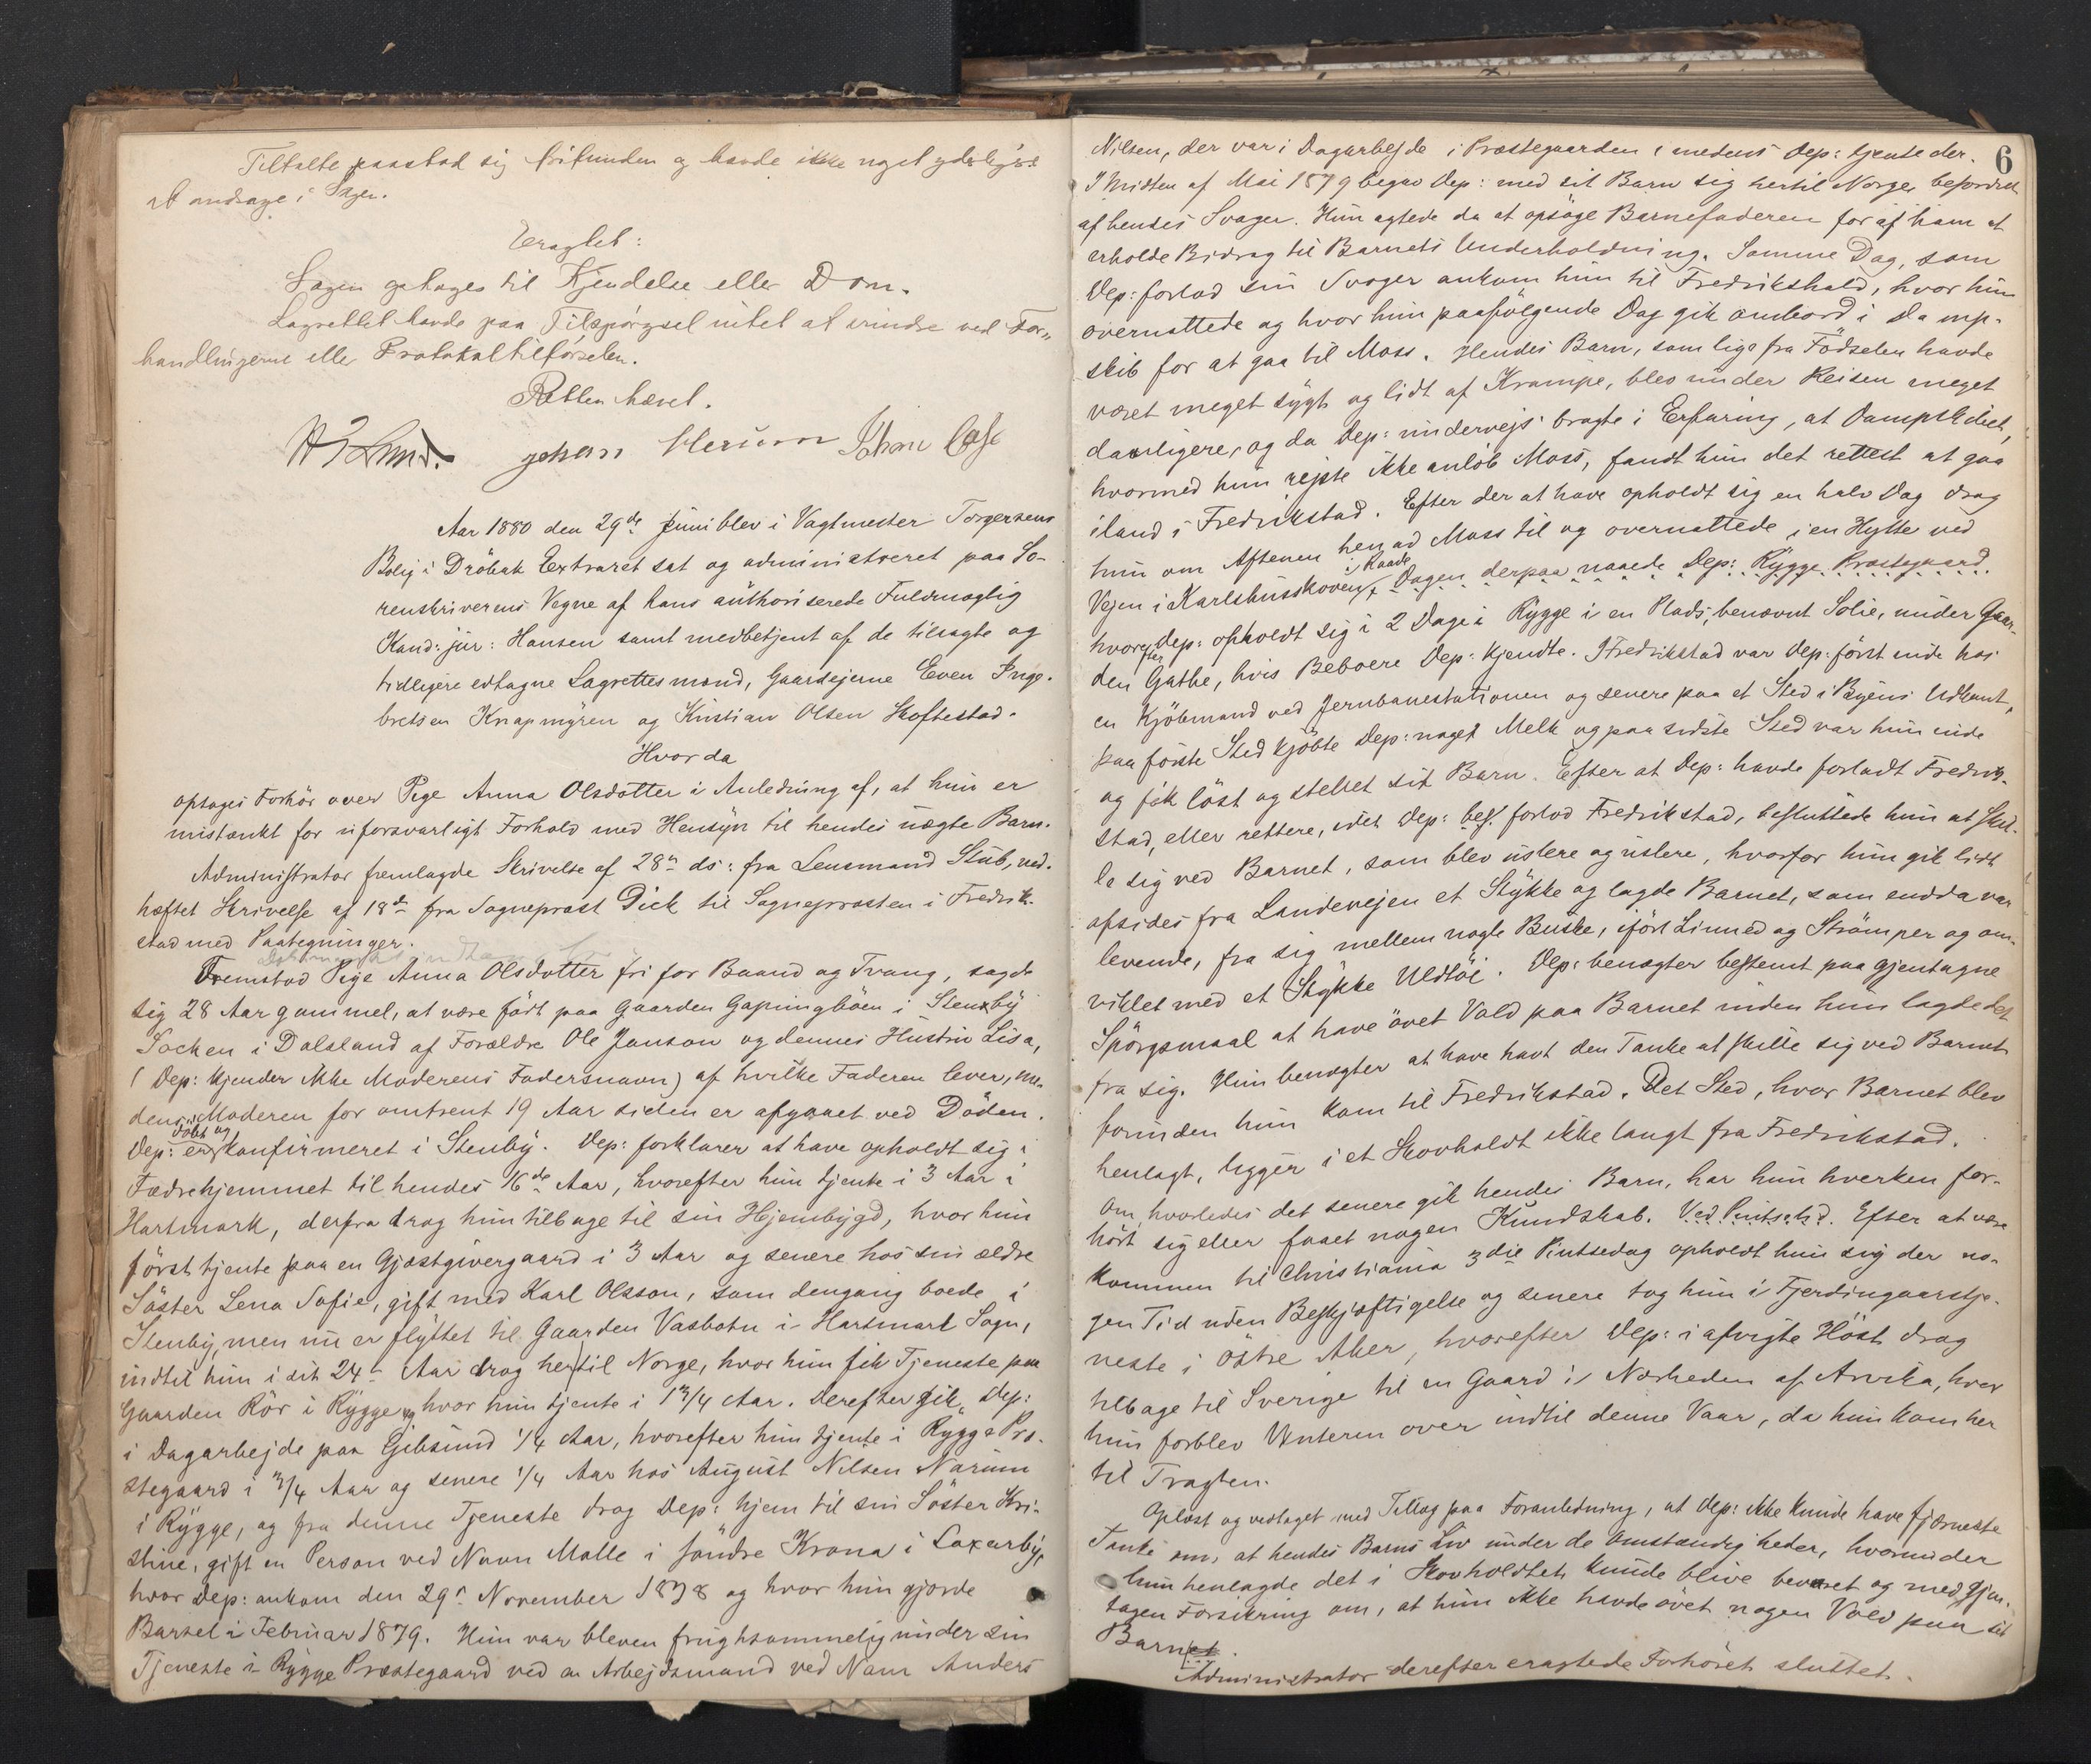 Tiltalte paastod sig frifunden og havde ikke noget yderligere
at andrage i Sagen.
Eragtet:
Sagen optages til Kjendelse eller Dom.
Lagrettet havde paa Tilspörgsel intet at erindre ved For„
handlingerne eller Protokoltilförselen.
Retten hævet.
Johan
Aar 1880 den 29de Juni blev i Vagtmester Torgersens
Bolig i Dröbak Extraret sat og administreret paa So-
renskriverens Vegne af hans authoriserede Fuldmægtig
Kand: jur: Hansen samt medbetjent af de tilsagte og
tidligere edtagne Lagrettesmænd, Gaardejerne Even Inge-
bretsen Knapmyren og Kristian Olsen Skoftestad.
Hvorda
optages Forhör over Pige Anna Olsdotter i Anledning af, at hun er
mistænkt for uforsvarligt Forhold med Hensyn til hendes uægte Barn.
Administrator fremlagde Skrivelse af 28n ds: fra Lensmand Stub, ved-
hæftet Skrivelse af 18de fra Sogneprest Dick til Sognepresten i Fredrik-
stad med Paategninger.
Fremstod Pige Anna Olsdotter fri for Baand og Tvang, sagde
sig 28 Aar gammel, at være födt paa Gaarden Gapungböen i Stenby
Socken i Dalsland af Forældre Ole Janson og dennes Hustru Lisa,
(Dep: kjender ikke Moderens Fadersnavn) af hvilke Faderen lever, me-
dens Moderen for omtrent 19 Aar siden er afgaaet ved Döden.
Dep: er döbt og konfirmeret i Stenby. Dep: forklarer at have opholdt sig i
Fædrehjemmet til hendes 16de Aar, hvorefter hun tjente i 3 Aar i
Hartmark, derfra drog hun tilbage til sin Hjembygd, hvor hun
först tjente paa en Gjæstgivergaard i 3 Aar og senere hos sin ældre
Söster Lena Sofie, gift med Karl Olsson, som dengang boede i
Stenby, men nu er flyttet til Gaarden Vasbotn i Hartmark Sogn,
indtil hun i sit 24de Aar drog hertil Norge, hvor hun fik Tjeneste paa
Gaarden Rör i Rygge, hvor hun tjente i 1 3/4 Aar. Derefter gik Dep:
i Dagarbejde paa Gjelsund 1/4 Aar, hvorefter hun tjente i Rygge Præ-
stegaard i 3/4 Aar og senere 1/4 Aar hos August Nilsen Nærum
i Rygge, og fra denne Tjeneste drog Dep: hjem til sin Söster Kri-
stine, gift en Person ved Navn Malle i söndre Krona i Laxarby,
hvor Dep: ankom den 29n November 1878 og hvor hun gjorde
Barsel i Februar 1879. Hun var bleven frugtsommelig under sin
Tjeneste i Rygge Præstegaard ved en Arbejdsmand ved Navn Anders
6
Nilsen, der var i Dagarbejde i Præstegaarden, medens Dep: tjente der.
I Midten af Mai 1879 begav Dep: med sit Barn sig hertil Norge, befordret
af hendes Svoger. Hun agtede da at opsöge Barnefaderen for af ham at
erholde Bidrag til Barnets Underholdning. Samme Dag, som
Dep: forlod sin Svoger ankom hun til Fredrikshald, hvor hun
overnattede og hvor hun paafölgende Dag gik ombord i Damp-
skib for at gaa til Moss. Hendes Barn, som lige fra Födselen havde
været meget sygt og lidt af Krampe, blev under Reisen meget
daarligere, og da Dep: undervejs bragte i Erfaring, at Dampskibet,
hvormed hun rejste ikke anlöb Moss, fandt hun det rettest at gaa
iland i Fredrikstad. Efter der at have opholdt sig en halv Dag drog
hun om Aftenen henad Moss til og overnattede i en Hytte ved
Vejen i Karlshusskoven i Raade, Dagen derpaa naaede Dep: Rygge Præstegaard
hvorefter Dep: opholdt sig i 2 Dage i Rygge i en Plads, benævnt Solie, under Gaar-
den Gathe, hvis Beboere Dep: kjendte. I Fredrikstad var Dep: först inde hos
en Kjöbmand ved Jernbanestationen og senere paa et Sted i Byens Udkant,
paa förste Sted kjöbte Dep: noget Melk og paa sidste Sted var hun inde
og fik löst og stellet sit Barn. Efter at Dep: havde forladt Fredrik-
stad, eller rettere, idet Dep: bes. forlod Fredrikstad, besluttede hun at skil-
le sig ved Barnet, som blev uslere og uslere, hvorfor hun gik lidt
afsides fra Landevejen et Stykke og lagde Barnet, som endda var
levende, fra sig mellem nogle Buske, iført Linned og Strömper og om-
viklet med et Stykke Uldtöi. Dep: benægter bestemt paa gjentagne
Spörgsmaal at have övet Vold paa Barnet inden hun lagde det
fra sig. Hun benægter at have havt den Tanke at skille sig ved Barnet
forinden hun kom til Fredrikstad. Det Sted, hvor Barnet blev
henlagt, ligger i et Skovholdt ikke langt fra Fredrikstad.
Om, hvorledes det senere gik hendes Barn, har hun hverken for-
hört sig eller faaet nogen Kundskab. Ved Pintsetid. Efter at være
kommen til Christiania 3die Pintsedag opholdt hun sig der no-
gen Tid uden Beskjæftigelse og senere tog hun i Fjerdingaarstje-
neste i östre Aker, hvorefter Dep: i afvigte Höst drog
tilbage til Sverige til en Gaard i Nærheden af Arvika, hvor
hun forblev Vinteren over indtil denne Vaar, da hun kom her
til Tragten.
Oplæst og vedtaget med Tillæg paa Foranledning, at Dep: ikke kunde have fjærneste
Tanke om, at hendes Barns Liv under de Omstændigheder, hvorunder
hun henlagde det i Skovholdtet kunde blive bevaret og med gjen-
tagen Forsikring om, at hun ikke havde övet nogen Vold paa sit
Barn.
Administrator derefter eragtede Forhöret sluttet.